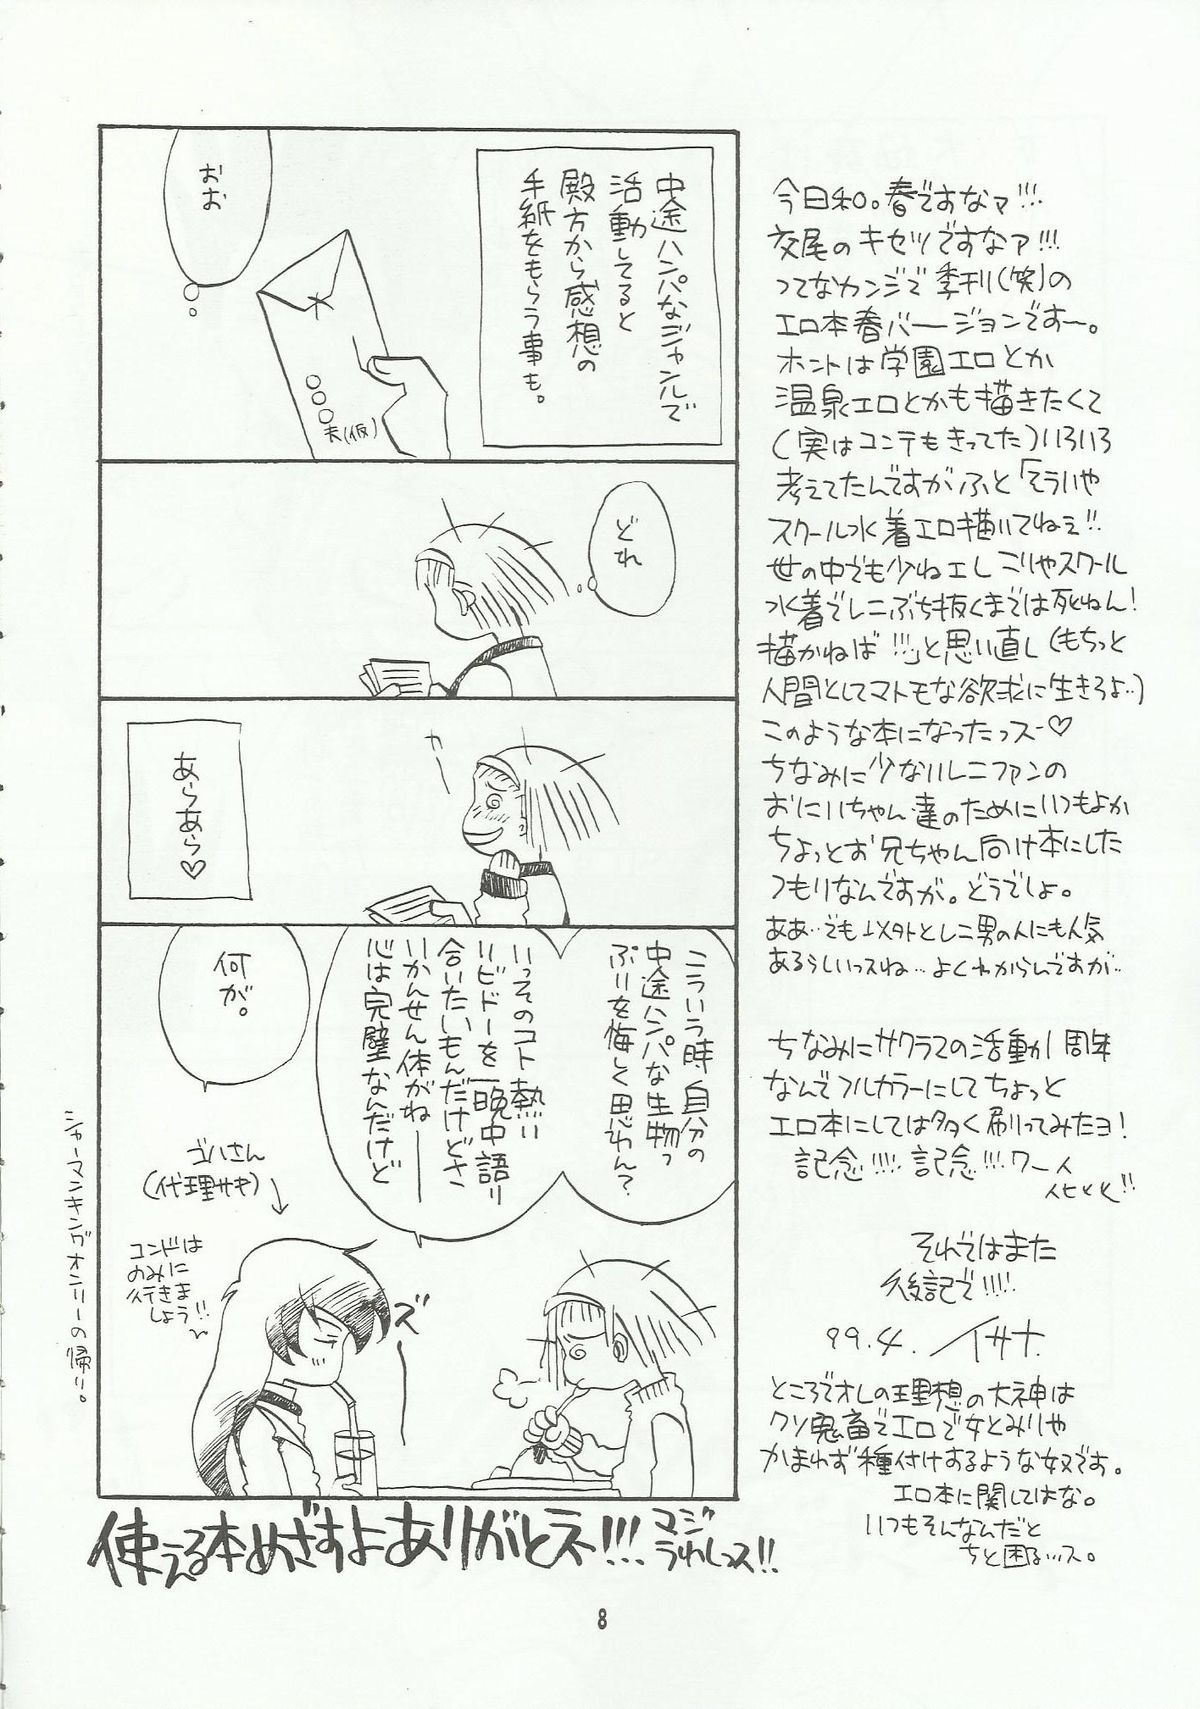 今日和。春ですなァ!!!
交尾のキセツですなァ!!!
ってなカンジで季刊(笑)の
エロ本春バージョンですー。
ホントは学園エロとか
温泉エロとかも描きたくて
(実はコンテもきってた)いろいろ
考えてたんですがふと「そういや
スクール水着エロ描いてねぇ!!
世の中でも少ねエしこりゃスクール
水着でレニぶち抜くまでは死ねん!
描かねば!!!」と思い直し(もちっと
人間としてマトモな欲求に生きろよ‥)
このような本になったっスー♡
ちなみに少ないレニファンの
おにいちゃん達のためにいつもよか
ちょっとお兄ちゃん向け本にした
つもりなんですが。どうでしょ。
ああ‥でも以外とレニ男の人にも人気
あるらしいっスね…よくわからんですが‥
ちなみにサクラでの活動が1周年
なんでフルカラーにしてちょっと
エロ本にしては多く刷ってみたヨ!
記念!!!! 記念!!! ワーイ
それではまた
後記で!!!!
99.4. イサナ
ところでオレの理想の大神は
クソ鬼畜でエロで女とみりゃ
かまわず種付けするような奴です。
エロ本に関してはな。
いつもそんなんだと
ちと困る…ス。
中途ハンパなジャンルで
活動してると
殿方から感想の
手紙をもらう事も。
おお
○○○夫(仮)
どれ
カー
あらあら♡
こういう時自分の
中途ハンパな生物っ
ぷりを悔しく思わん?
いっそのコト熱い
リビドーを一晩中語り
合いたいもんだけどさ
いかんせん体がね——
心は完璧なんだけど
何が。
ゴハさん
(代理サキ)
コンドは
のみに
行きま
しょう!!
ズー
シャーマンキングオンリーの帰り。
使える本めざすよありがとネ!!!
マジ
うれしっス!!
8